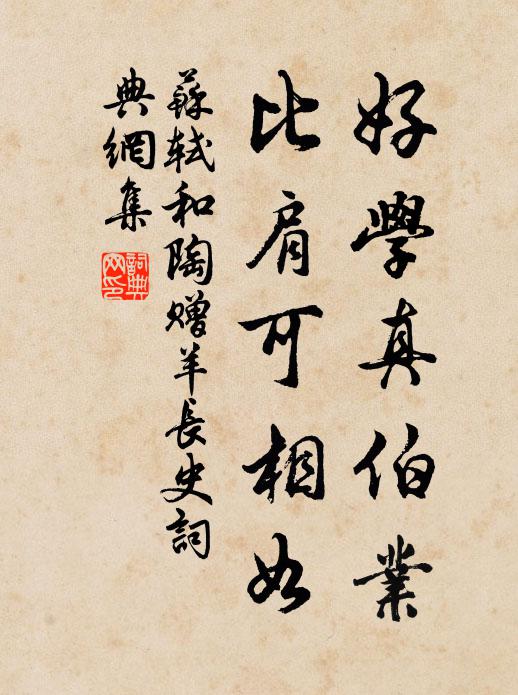 好學真伯業
比肩可相如
蘇軾和陶贈羊長史詞
典網集
詞典網印